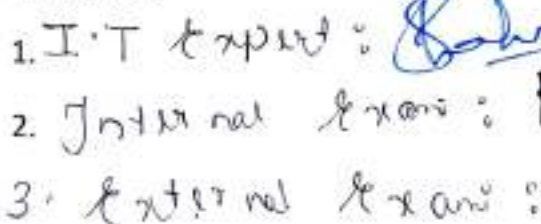 1. I.T Expert :
2. Internal Exam :
3. External Exam :